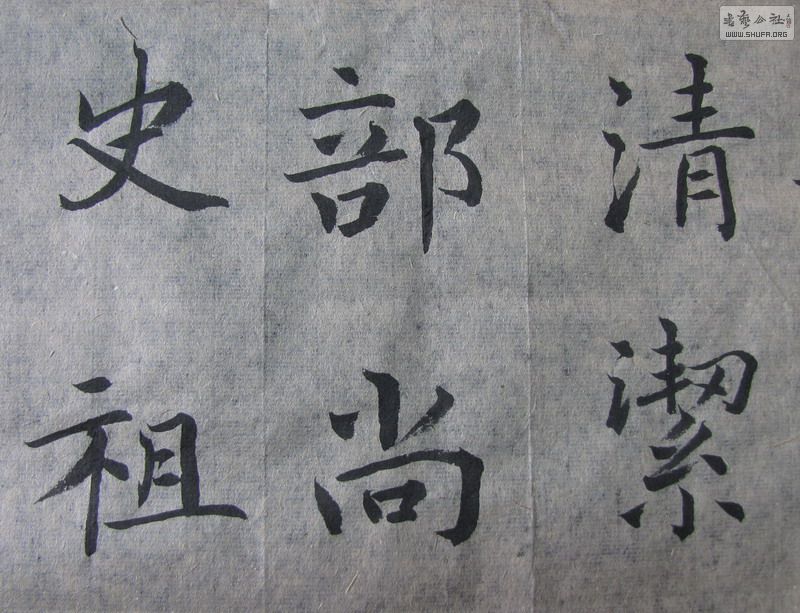 清潔
部尚
史祖
书艺公社
WWW.SHUFA.ORG